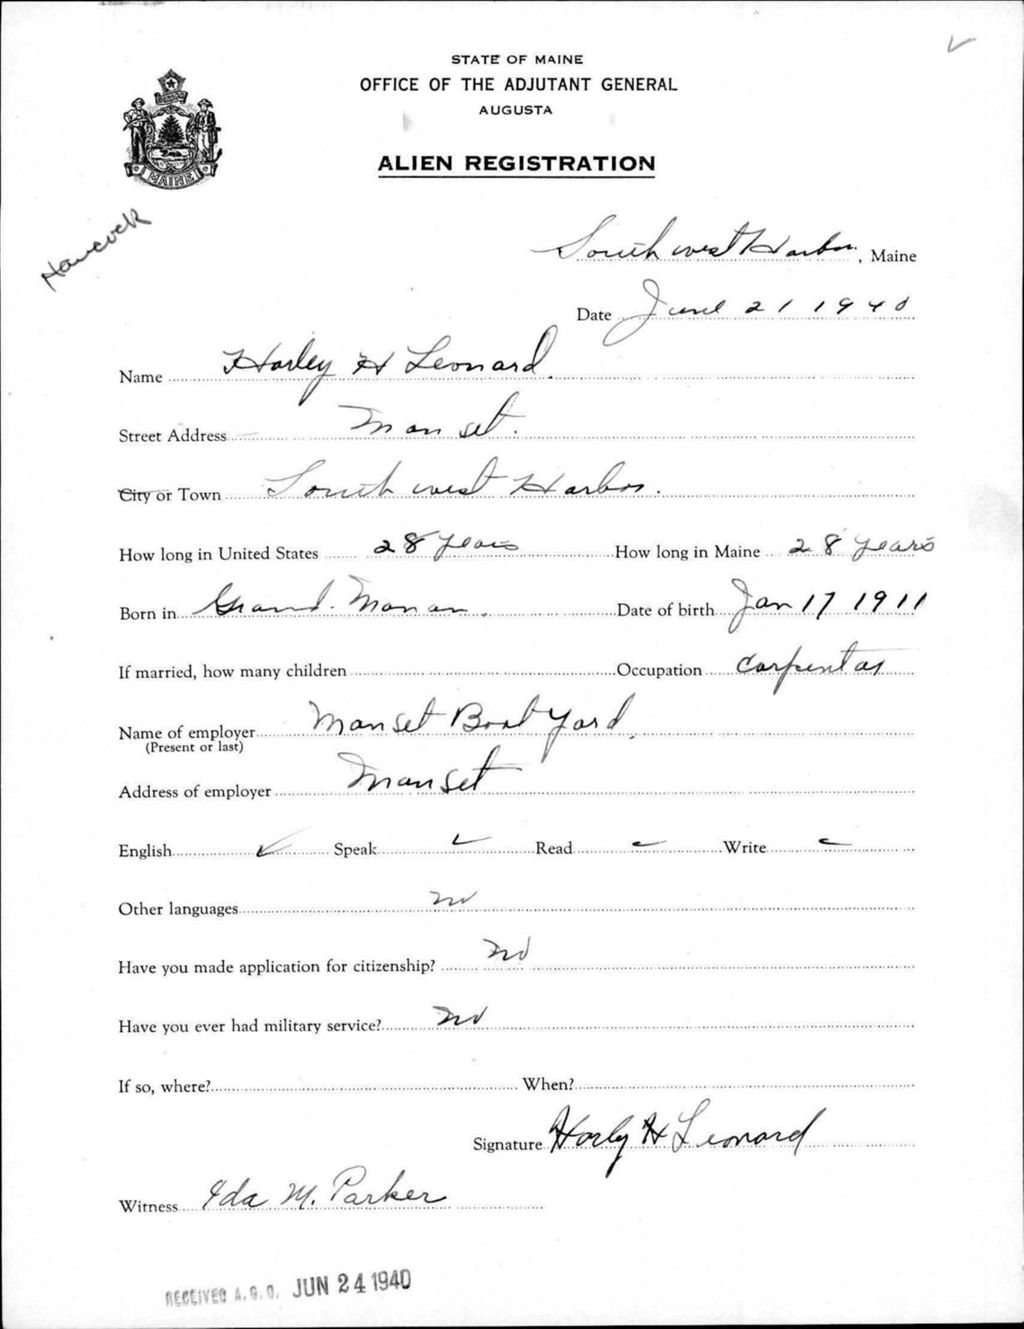 STATE OF MAINE
OFFICE OF THE ADJUTANT GENERAL
AUGUSTA
ALIEN REGISTRATION
MAINE
Hancock
South west Harbor, Maine
Date June 21 1940
Name Harley H Leonard.
Street Address Manset.
City or Town South west Harbor.
How long in United States 28 years How long in Maine 28 years
Born in Grand. Manan. Date of birth Jan 17 1911
If married, how many children Occupation Carpenter
Name of employer Manset Boat Yard.
(Present or last)
Address of employer Manset
English ✓ Speak ✓ Read ✓ Write ✓
Other languages no
Have you made application for citizenship? No
Have you ever had military service? No
If so, where? When?
Signature Harley H Leonard
Witness Ida M. Parker
RECEIVED A.G.O. JUN 24 1940